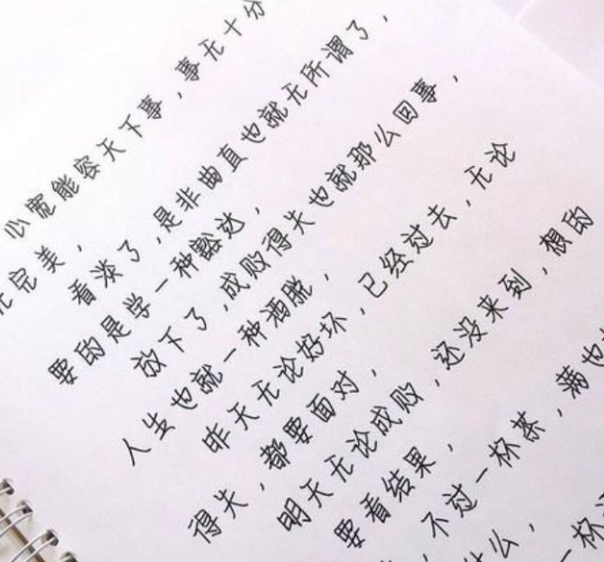 心宽能容天下事，事无十分
完美，
看淡了，是非曲直也就无所谓了，
要的是学一种豁达，
放下了，成败得失也就那么回事，
人生也就一种洒脱，
昨天无论好坏，已经过去，无论
得失，都要面对，
明天无论成败，还没来到，想的
要看结果，
，不过一杯茶，满也
什么，
一杯